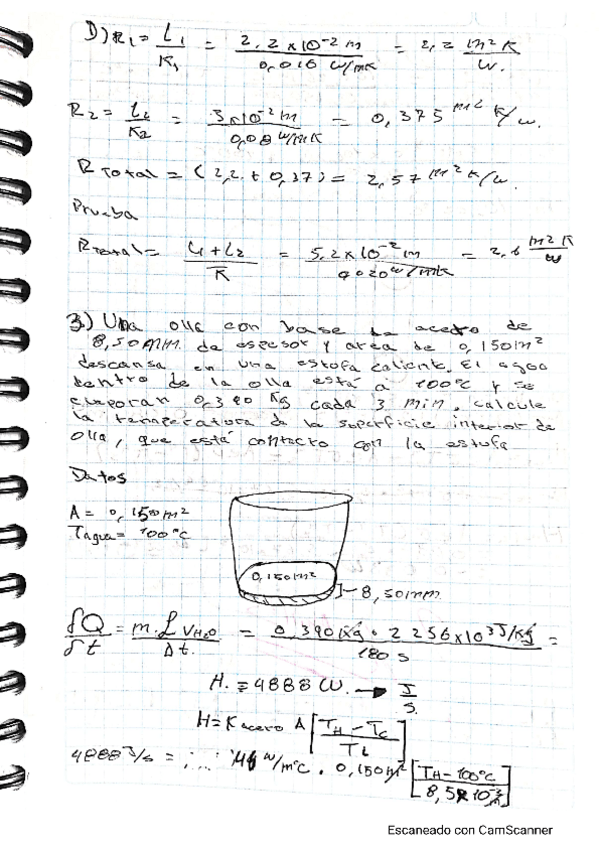 D) R₁ = L₁/K₁ = 2,2 x10⁻² m / 0,010 w/mK = 2,2 m² K / W.
R₂ = L₂/K₂ = 3x10⁻² m / 0,08 w/mK = 0,375 m² K/w.
R Total = (2,2 + 0,37) = 2,57 m² K/w.
Prueba
R Total = L₁+L₂ / K = 5,2x10⁻² m / 0,020 w/mK = 2,6 m² K / W
3.) Una olla con base de acero de
8,50mm. de espesor y area de 0,150m²
descansa en una estufa caliente. El agua
dentro de la olla está a 100°C y se
evaporan 0,390 Kg cada 3 min. calcule
la temperatura de la superficie inferior de
olla, que está contacto con la estufa
Datos
A = 0,150m²
Tagua = 100°C
0,150m²
8,50mm
δQ/δt = m·L V H₂O / Δt. = 0,390Kg · 2256x10³ J/Kg / 180 s =
H. = 4888 W. → J/S.
H = K acero A [TH - TC / TL]
4888 J/s = w/m°C . 0,150m² [TH - 100°C / 8,5x10⁻³]
Escaneado con CamScanner